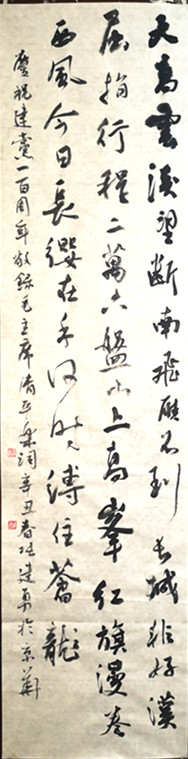 天高雲淡望断南飛雁不到長城非好漢
屈指行程二萬六盤山上高峯紅旗漫卷
西風今日長纓在手何时縛住蒼龍
慶祝建黨一百周年敬錄毛主席清平樂詞辛丑春建勇於京華